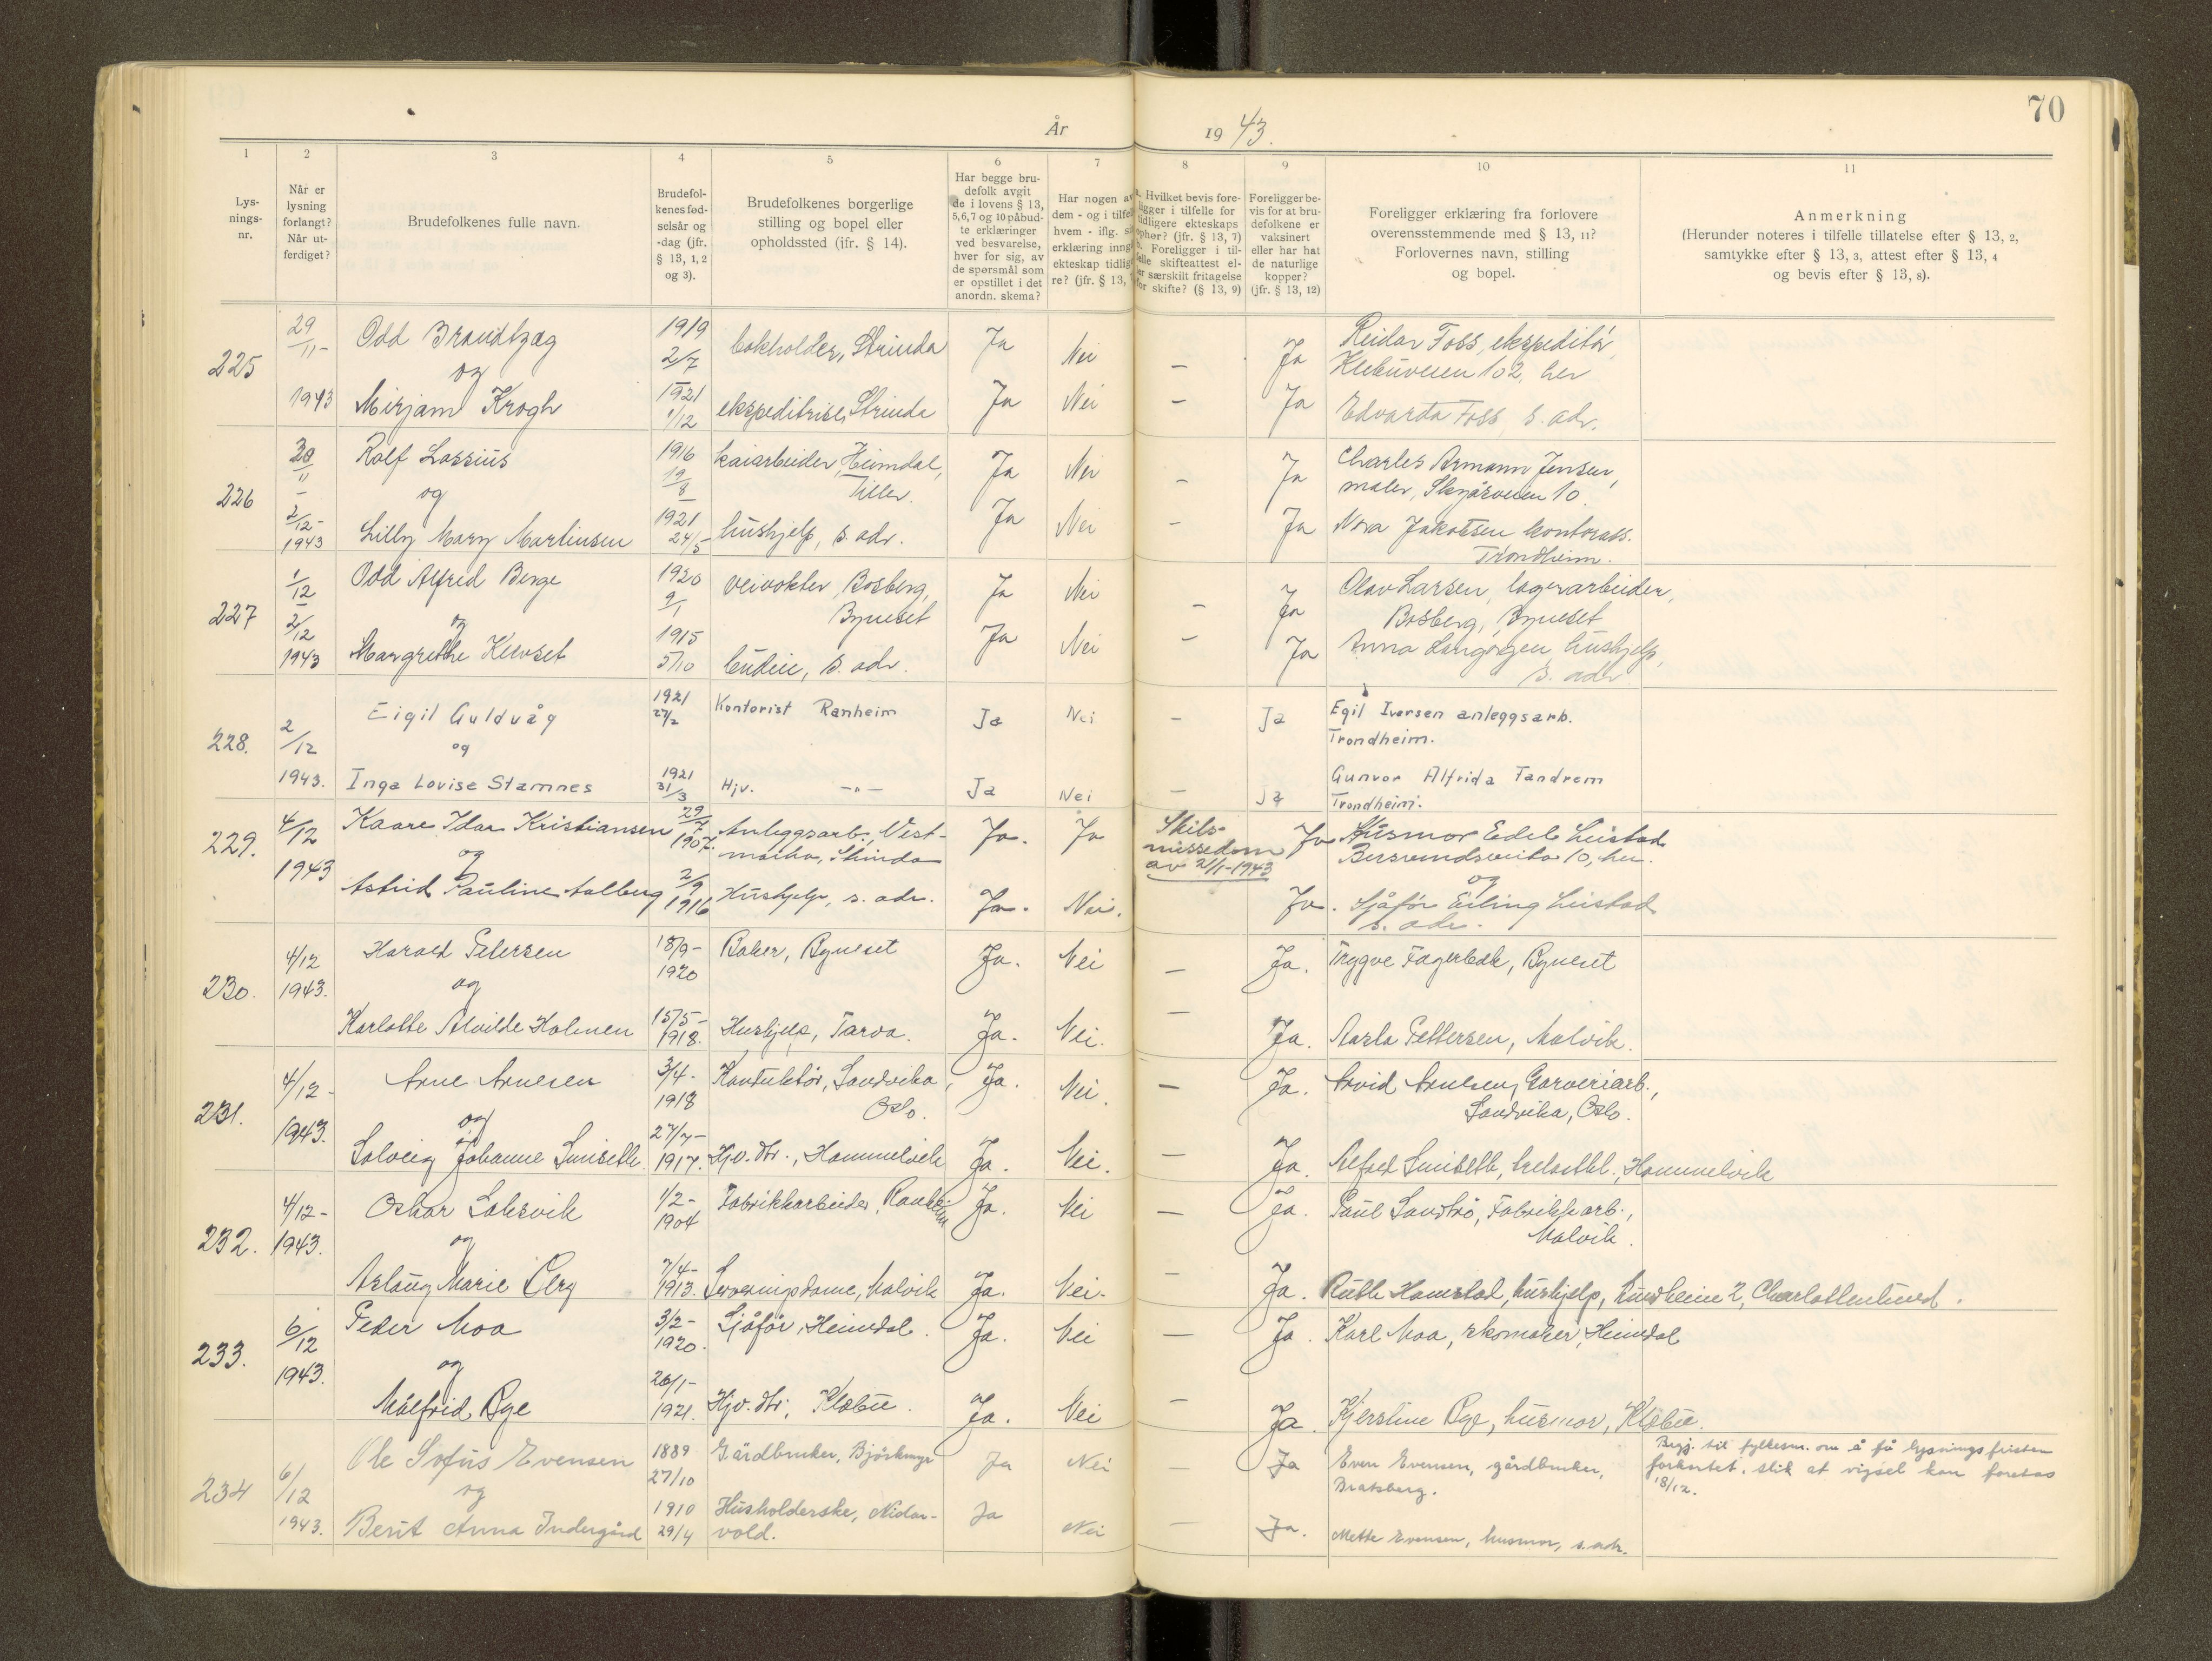 70
År 1943.
1 2 3 4 5 6 7 8 9 10 11
Lys-
nings-
nr.
Når er
lysning
forlangt?
Når ut-
ferdiget?
Brudefolkenes fulle navn.
Brudefol-
kenes fød-
selsår og
-dag (jfr.
§ 13, 1, 2
og 3).
Brudefolkenes borgerlige
stilling og bopel eller
opholdssted (jfr. § 14).
Har begge bru-
defolk avgit
de i lovens § 13,
5, 6, 7 og 10 påbud-
te erklæringer
ved besvarelse,
hver for sig, av
de spørsmål som
er opstillet i det
anordn. skema?
Har nogen av
dem - og i tilfel
hvem - iflg. s
erklæring inng
ekteskap tidlig
re? (jfr. § 13,
a. Hvilket bevis fore-
ligger i tilfelle for
tidligere ekteskaps
ophør? (jfr. § 13, 7)
b. Foreligger i til-
felle skifteattest el-
ler særskilt fritagelse
for skifte? (§ 13, 9)
Foreligger be-
vis for at bru-
defolkene er
vaksinert
eller har hat
de naturlige
kopper?
(jfr. § 13, 12)
Foreligger erklæring fra forlovere
overensstemmende med § 13, 11?
Forlovernes navn, stilling
og bopel.
Anmerkning
(Herunder noteres i tilfelle tillatelse efter § 13, 2,
samtykke efter § 13, 3, attest efter § 13, 4
og bevis efter § 13, 8).
225
29/11-
1943
Odd Brandtzæg
og
Mirjam Krogh
1919
2/7
1921
1/12
bokholder, Strinda
ekspeditrise, Strinda
Ja Nei – Ja
Ja Nei – Ja
Reidar Foss, ekspeditør,
Klæbuveien 102, her
Edvarda Foss, s. adr.
226
30/11
–
2/12-
1943
Rolf Lossius
og
Lilly Mary Martinsen
1916
19/8
1921
24/5
kaiarbeider, Heimdal,
Tiller.
hushjelp, s. adr.
Ja Nei – Ja
Ja Nei – Ja
Charles Armann Jensen,
maler, Skyåsveien 10.
Nora Jakobsen kontorass.
Trondheim.
227
1/12
–
2/12
1943
Odd Alfred Berge
og
Margrethe Kurset
1920
9/1
1915
5/10
veivokter, Bosberg,
Byneset
budeie, s. adr.
Ja Nei – Ja
Ja Nei – Ja
Olav Larsen, lagerarbeider,
Bosberg, Byneset
Anna Langørgen hushjelp,
s. adr
228.
2/12
1943.
Eigil Guldvåg
og
Inga Lovise Stamnes
1921
27/2
1921
31/3
Kontorist Ranheim
Hjv. -"-
Ja Nei – Ja
Ja Nei – Ja
Egil Iversen anleggsarb.
Trondheim.
Gunvor Alfrida Tandrem
Trondheim.
229.
4/12
1943
Kaare Idar Kristiansen
og
Astrid Pauline Aalberg
29/7
1907.
2/9
1916
Anleggsarb., Vest-
marka, Strinda
Hushjelp, s. adr.
Ja. Ja
Skils-
missedom
av 21/1-1943
Ja
Ja. Nei. Ja.
Husmor Edel Leistad
Bersvendsveita 10, her.
og
Sjåfør Erling Leistad
s. adr.
230.
4/12
1943.
Harald Petersen
og
Karlotte Alvilde Holmen
18/9-
1920
15/5-
1918.
Baker, Byneset
Hushjelp, Tarva.
Ja. Nei – Ja.
Ja. Nei. – Ja.
Trygve Fagerbekk, Byneset
Aasla Pettersen, Malvik.
231.
4/12-
1943.
Arne Arnesen
og
Solveig Johanne Smiseth
3/4-
1918
27/7-
1917.
Konduktør, Sandvika,
Oslo.
Hjv. dtr., Hommelvik
Ja. Nei. – Ja.
Ja. Nei. – Ja.
Arvid Arnesen, Garveriarb.,
Sandvika, Oslo.
Alfred Smiseth, Hommelvik
232.
4/12-
1943.
Oskar Saksvik
og
Aslaug Marie Berg
1/2-
1904
7/4-
1913.
Fabrikkarbeider, Ranheim
Serveringsdame, Malvik
Ja. Nei – Ja.
Ja. Nei. – Ja.
Paul Sandtrø, Fabrikkarb.,
Malvik.
Ruth Hamstad, hushjelp, Lundheim 2, Charlottenlund.
233.
6/12
1943.
Peder Moa
og
Målfrid Rye
3/2-
1920.
26/1-
1921.
Sjåfør, Heimdal.
Hjv. dtr., Klæbu.
Ja. Nei – Ja.
Ja. Nei – Ja.
Karl Moa, skomaker, Heimdal
Kjerstine Rye, husmor, Klæbu.
234
6/12
1943.
Ole Sofus Evensen
og
Berit Anna Indergård
1889
27/10
1910
29/4
Gårdbruker, Bjørkmyr
Husholderske, Nidar-
vold.
Ja Nei – Ja
Ja Nei – Ja.
Even Evensen, gårdbruker,
Bratsberg.
Mette Evensen, husmor, s. adr.
Begj. til fylkesm. om å få lysningsfristen
forkortet, slik at vigsel kan foretas
18/12.